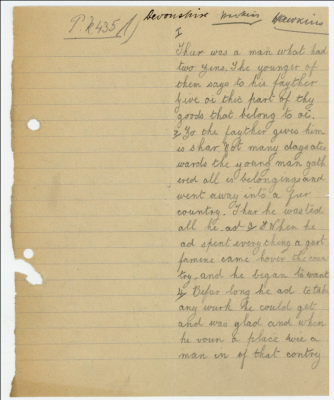 P.k 435
Devonshire Hawkins
I
Thur was a man what had
two zins. The younger of
them says to his fayther
Give oi this part of thy
goods that belong to oi.
2 Zo the fayther gives him
is shar Not many days ate
wards the young man gath
ered all is belongings and
went away into a fur
country. Thur he wasted
all he ad 3 When he
ad spent everything a gert
famine came hover the coun
try, and he began to want
4 Befur long he ad to take
any wurk he could get
and was glad and when
he voun a place wie a
man in of that contry